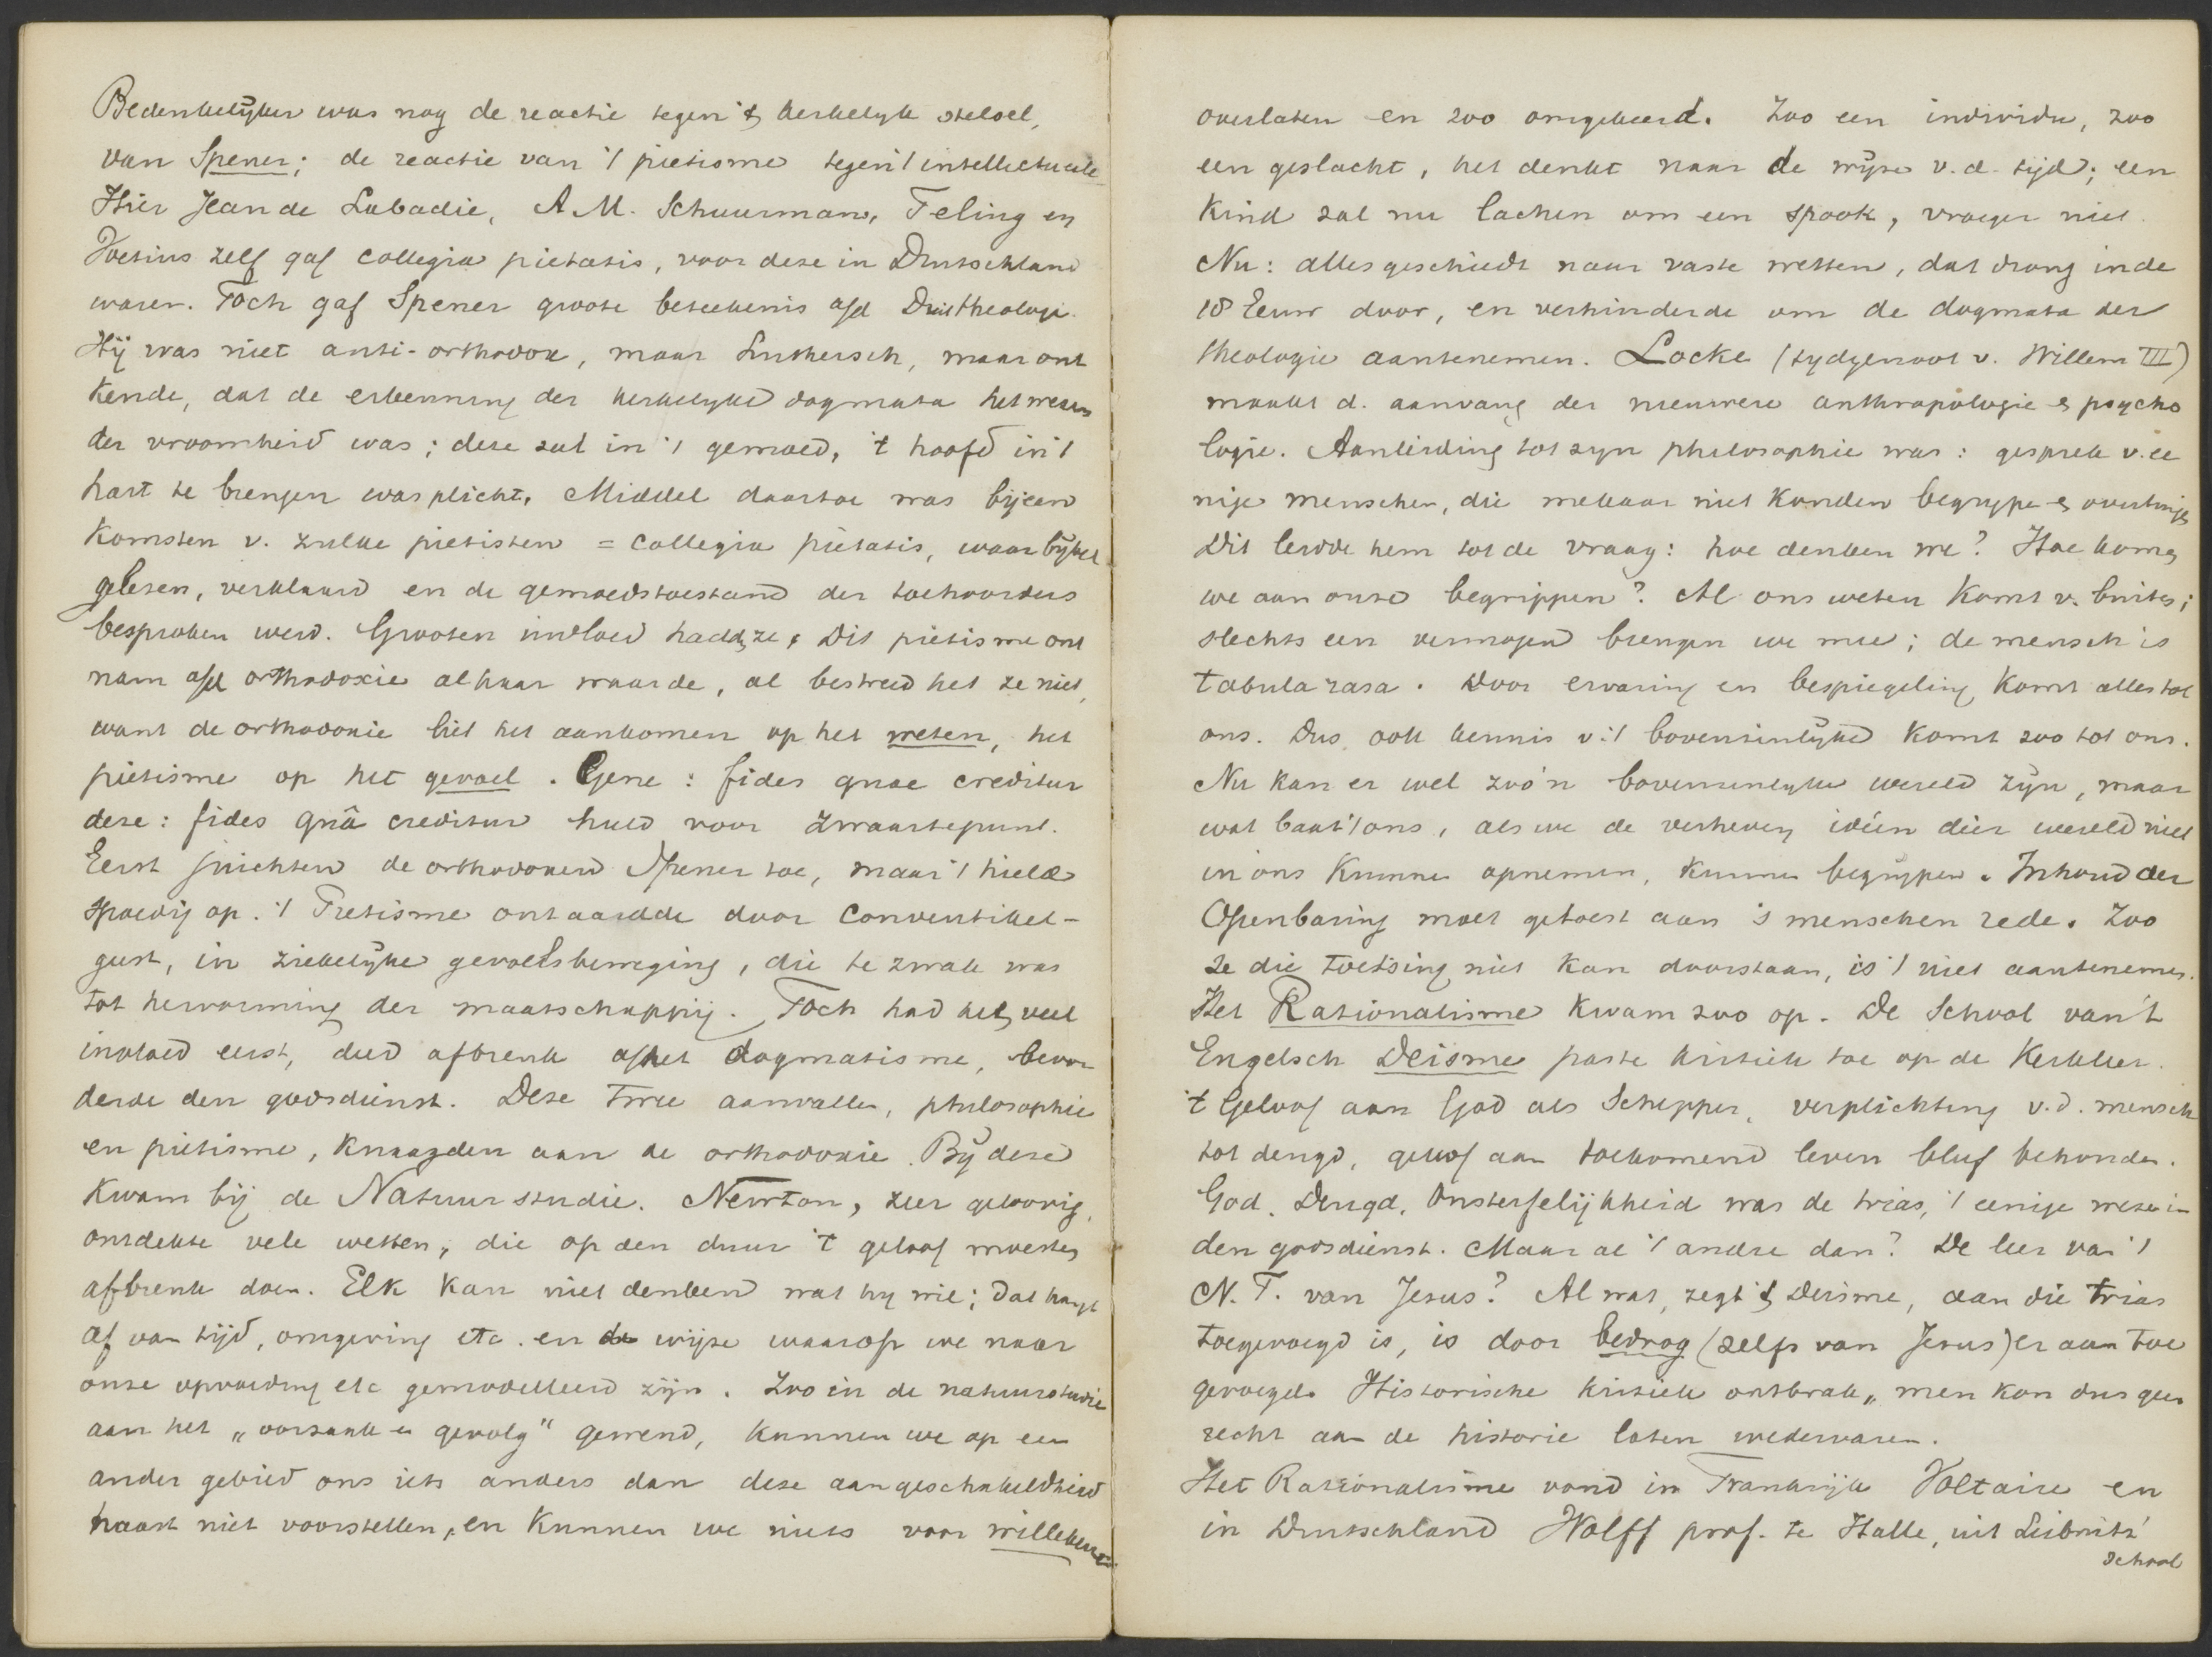 Bedenkelijker was nog de reactie tegen 't kerkelijk stelsel,
van Spener; de reactie van 't pietisme tegen 't intellectueele
Hier Jean de Labadie, A.M. Schuurman, Teling en
Voetius zelf gaf collegia pietatis, voor deze in Duitschland
waren. Toch gaf Spener groote beteekenis a/d Duitsche theologi.
Hij was niet anti-orthodox, maar Luthersch, maar ont
kende, dat de erkenning der kerkelijke dogmata het wezen
der vroomheid was; deze zat in 't gemoed, 't hoofd in 't
hart te brengen was plicht. Middel daartoe was bijeen
komsten v. zulke pietisten = collegia pietatis, waar bijbel
gelezen, verklaard en de gemoedstoestand der toehoorders
besproken werd. Grooten invloed hadden ze. Dit pietisme ont
nam a/d orthodoxie al haar waarde, al bestreed het ze niet,
want de orthodoxie liet het aankomen op het weten, het
pietisme op het gevoel. Gene: fides quae creditur
deze: fides quâ creditur hield voor zwaartepunt.
Eerst juichten de orthodoxen Spener toe, maar 't hield
spoedig op. 't Pietisme ontaardde door conventikel-
geest, in ziekelijke gevoelsbeweging, die te zwak was
tot hervorming der maatschappij. Toch had het veel
invloed eerst, deed afbreuk a/h het dogmatisme, bevor
derde den godsdienst. Deze twee aanvallen, philosophie
en pietisme, knaagden aan de orthodoxie. Bij deze
kwam bij de Natuurstudie. Newton, zeer geloovig,
ontdekte vele wetten, die op den duur 't geloof moesten
afbreuk doen. Elk kan niet denken wat hij wil; dat hangt
af van tijd, omgeving etc. en de wijze waarop we naar
onze opvoeding etc gemodelleerd zijn. Zoo in de natuurstudie
aan het „oorzaak en gevolg" gewend, kunnen we op een
ander gebied ons iets anders dan deze aangeschakeldheid
haast niet voorstellen, en kunnen we niets voor willekeurig
overlaten en zoo omgekeerd. Zoo een individu, zoo
een geslacht, het denkt naar de wijze v.d. tijd; een
kind zal nu lachen om een spook, vroeger niet.
Nu: alles geschiedt naar vaste wetten, dat drong in de
18 Eeuw door, en verhinderde om de dogmata der
theologie aantenemen. Locke (tydgenoot v. Willem III)
maakt d. aanvang der nieuwere anthropologie en psycho
logie. Aanleiding tot zijn philosophie was: gesprek v. ee
nige menschen, die mekaar niet konden begrijpen en overtuigen
Dit leidde hem tot de vraag: hoe denken we? Hoe komen
we aan onze begrippen? Al ons weten komt v. buiten;
slechts een vermogen brengen we mee; de mensch is
tabula rasa. Door ervaring en bespiegeling komt alles tot
ons. Dus ook kennis v. 't bovenzinlijke komt zoo tot ons.
Nu kan er wel zoo'n bovenzinlijke wereld zijn, maar
wat baat 't ons, als we de verheven ideën dier wereld niet
in ons kunnen opnemen, kunnen begrijpen. Inhoud der
Openbaring moet getoest aan 's menschen rede. Zoo
ze die toetsing niet kan doorstaan, is 't niet aantenemen.
Het Rationalisme kwam zoo op. De School van 't
Engelsch Deisme paste kritiek toe op de Kerkleer.
't Geloof aan God als Schepper, verplichting v.d. mensch
tot deugd, geloof aan toekomend leven bleef behouden.
God, Deugd, Onsterfelijkheid was de trias, 't eenige wezen in
den godsdienst. Maar al 't andre dan? De leer van 't
N.T. van Jesus? Al wat, zegt 't Deisme, aan die trias
toegevoegd is, is door bedrog (zelfs van Jesus) er aan toe
gevoegd. Historische kritiek ontbrak, men kon dus geen
recht aan de historie laten wedervaren.
Het Rationalisme vond in Frankrijk Voltaire en
in Duitschland Wolff prof. te Halle, uit Leibnitz'
school